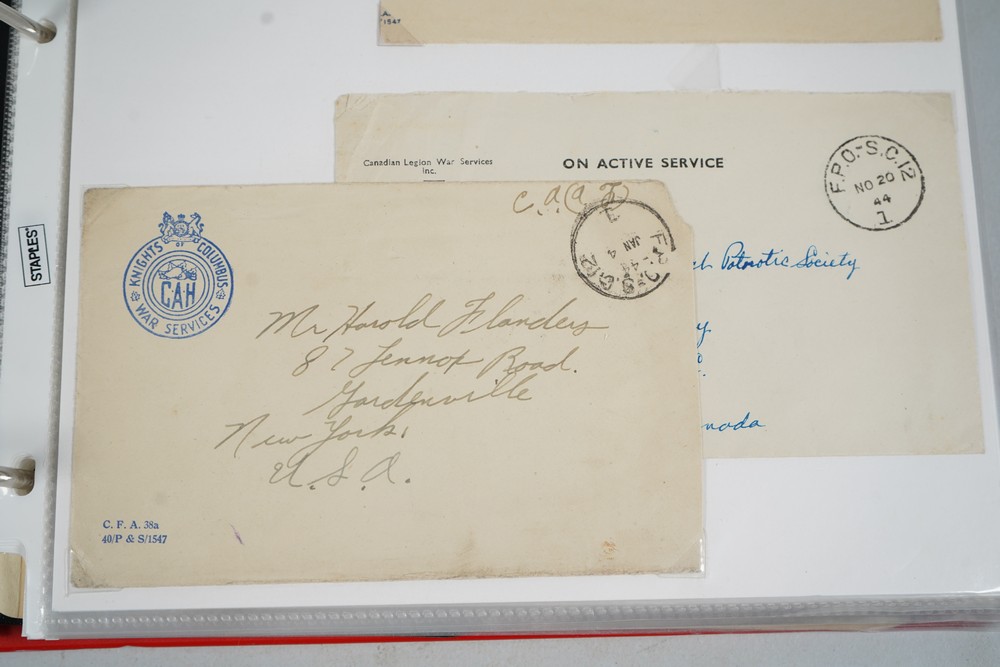 A.
1547
STAPLES
Canadian Legion War Services
Inc.
ON ACTIVE SERVICE
F.P.O.-S.C.12
NO 20
44
1
Patriotic Society
C.A.(A.F)
KNIGHTS OF COLUMBUS
C.A.H
WAR SERVICES
JAN 4
Mr Harold Flanders
87 Lennox Road.
Gardenville
New York.
U.S.A.
C. F. A. 38a
40/P & S/1547